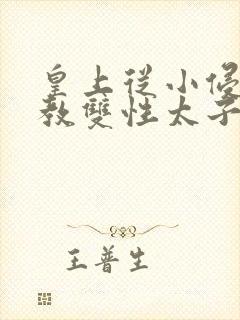 皇上從小侵
教雙性太子
王普生